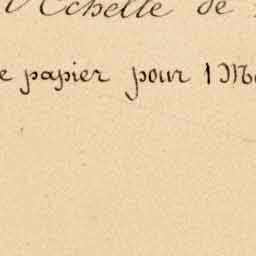 Echelle de
e papier pour 1 M